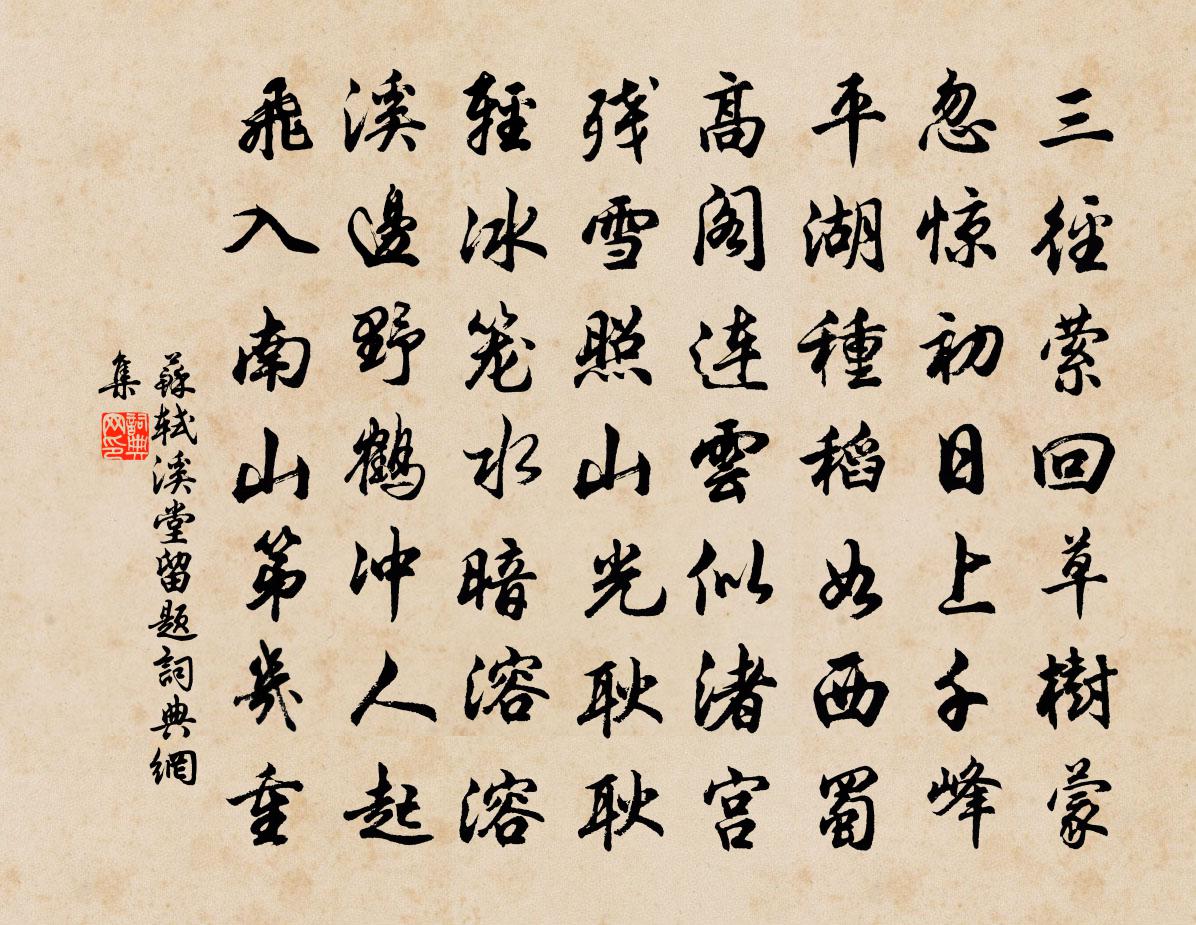 三徑縈回草樹蒙
忽惊初日上千峰
平湖種稻如西蜀
高阁连雲似渚宫
残雪照山光耿耿
輕冰笼水暗溶溶
溪邊野鹤冲人起
飛入南山第幾重
蘇轼溪堂留題詞典網
集
詞典
网印